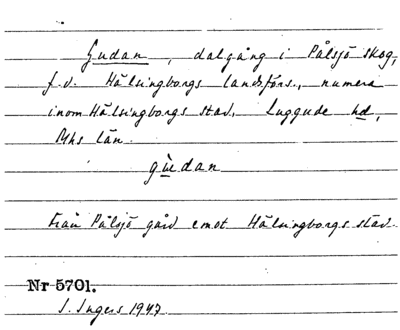 Gudan, dalgång i Pålsjö skog,
f.d. Hälsingborgs landsförs., numera
inom Hälsingborgs stad, Luggude hd,
Mhs län.
gùdan
Från Pålsjö gård emot Hälsingborgs stad.
Nr 5701.
I. Ingers 1947